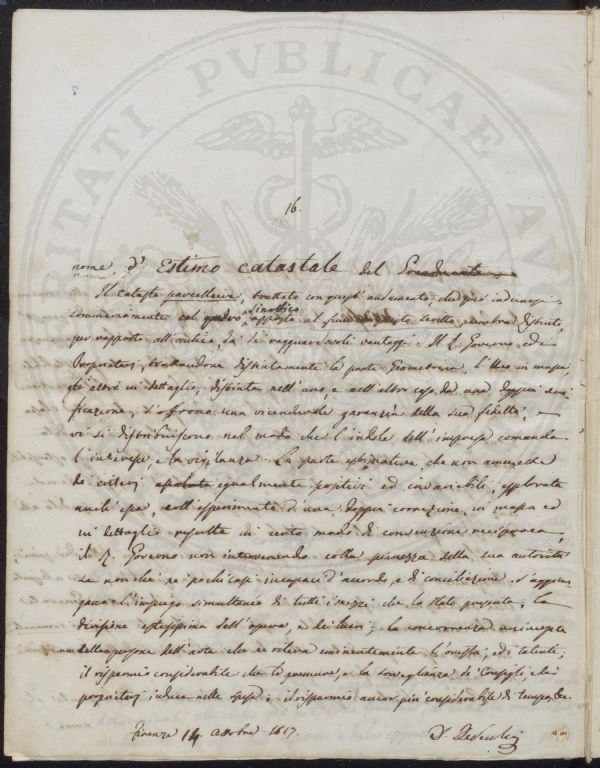 VERITATI PVBLICAE
16.
nome d'Estimo catastale del
Il catasto parcellario, trattato con quest'andamento, che può indicarsi
sommariamente col quadro sinottico apposto al fine di questo scritto, sembra distinto,
per rapporto all'antico, da' seguenti vantaggi. Il R. Governo ed i
Proprietari, trattandone distintamente la parte Geometrica, l'Uno in massa,
gli altri in dettaglio, distinta nell'uno, e nell'altro caso da una doppia
ficazione, s'offrono una vicendevole garanzia della sua fedeltà, e
vi si distribuiscono nel modo che l'indole dell'impresa comanda
l'interesse, e la vigilanza. La parte estimativa, che non ammette
de' criteri egualmente positivi ed invariabili, esplorata
anch'essa, coll'esperimento d'una doppia correzione, in massa ed
in dettaglio resulta in certo modo di convinzione reciproca,
il R. Governo non intervenendo colla pienezza della sua autorità
se non che ne' pochi casi incapaci d'accordo, e di conciliazione. S'aggiun-
gano l'impiego simultaneo di tutti i mezzi che lo Stato presenta; la
divisione estesissima dell'opera, e dei lucri; la concorrenza
delle persone dell'arte che se eleva eminentemente l' ed i talenti;
il risparmio considerabile che le premure, e la sorveglianza de' Consigli, e dei
proprietari induce nelle spese; il risparmio ancor più considerabile di tempo, &c.
Firenze 14 Ottobre 1817.